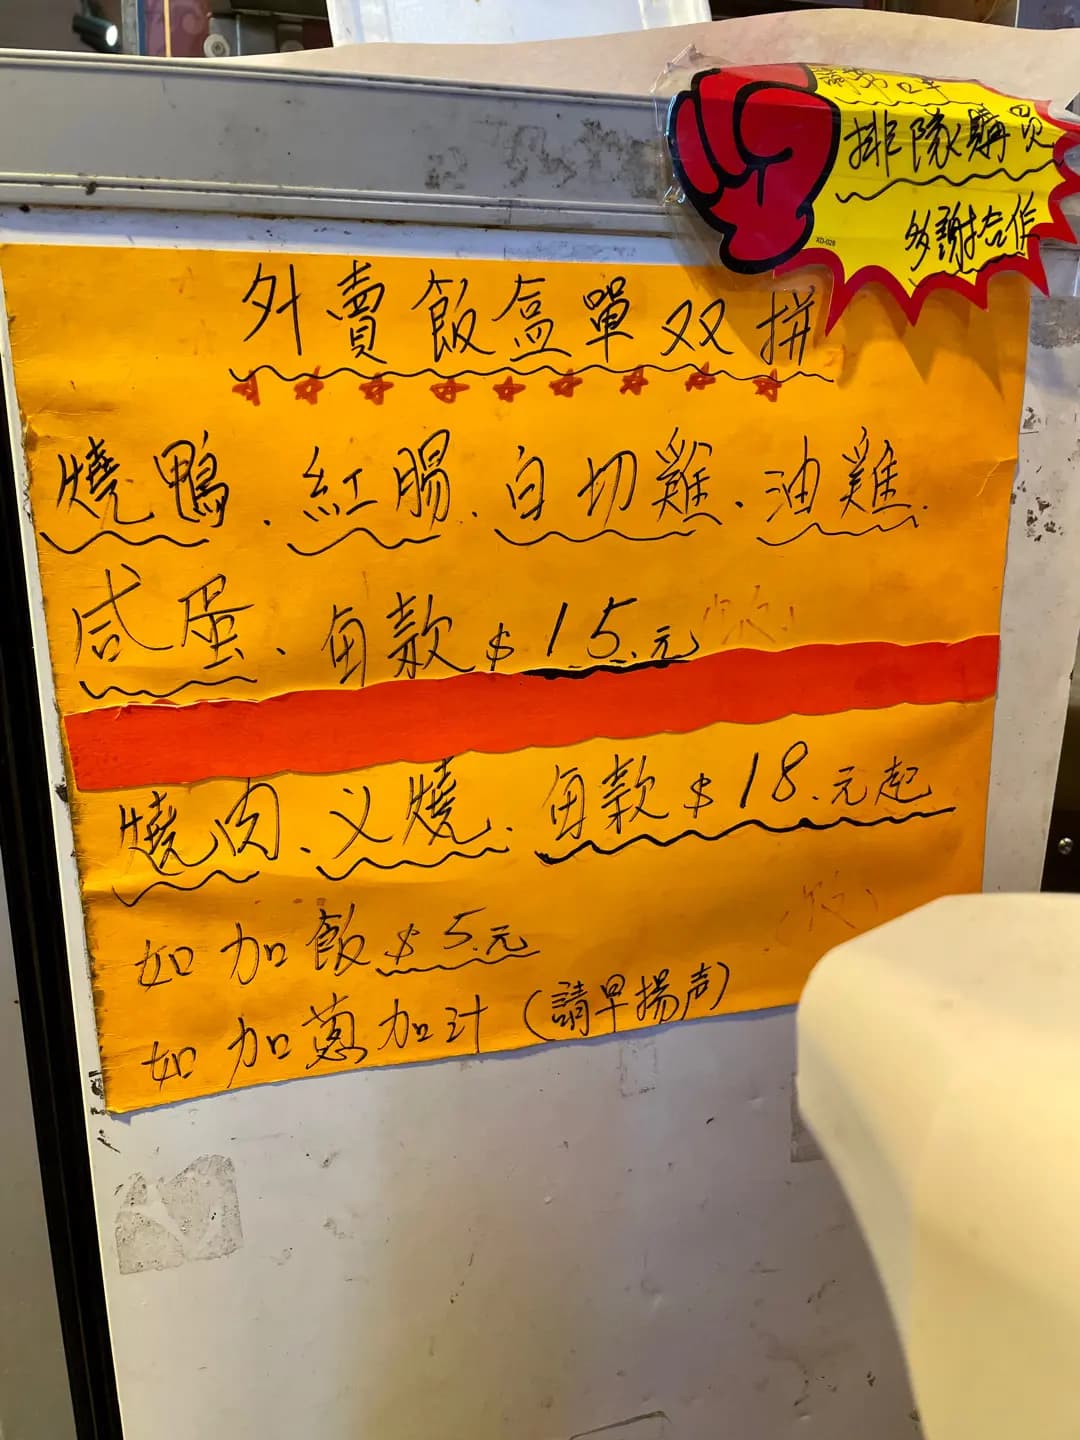 排隊購買
多謝合作
XD-028
外賣飯盒單双拼
燒鴨.紅腸.白切雞.油雞.
咸蛋.每款$15.元
燒肉.义燒.每款$18.元起
如加飯$5.元
如加蔥加汁(請早揚声)